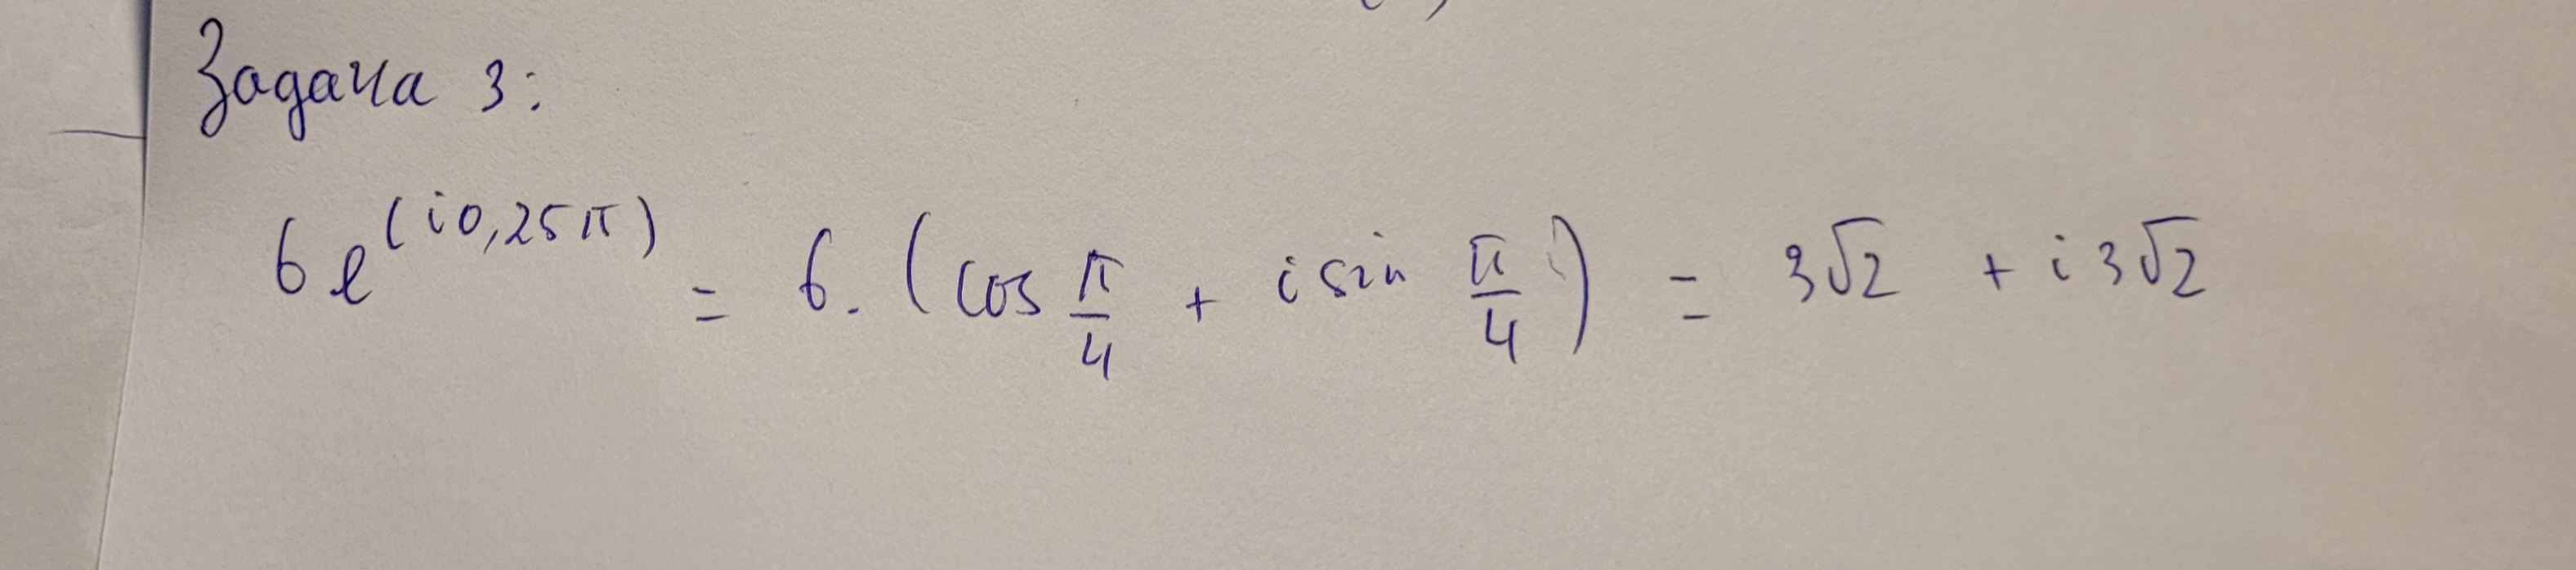 Задача 3:
6e^(i0,25π) = 6. (cos π/4 + i sin π/4) = 3√2 + i 3√2